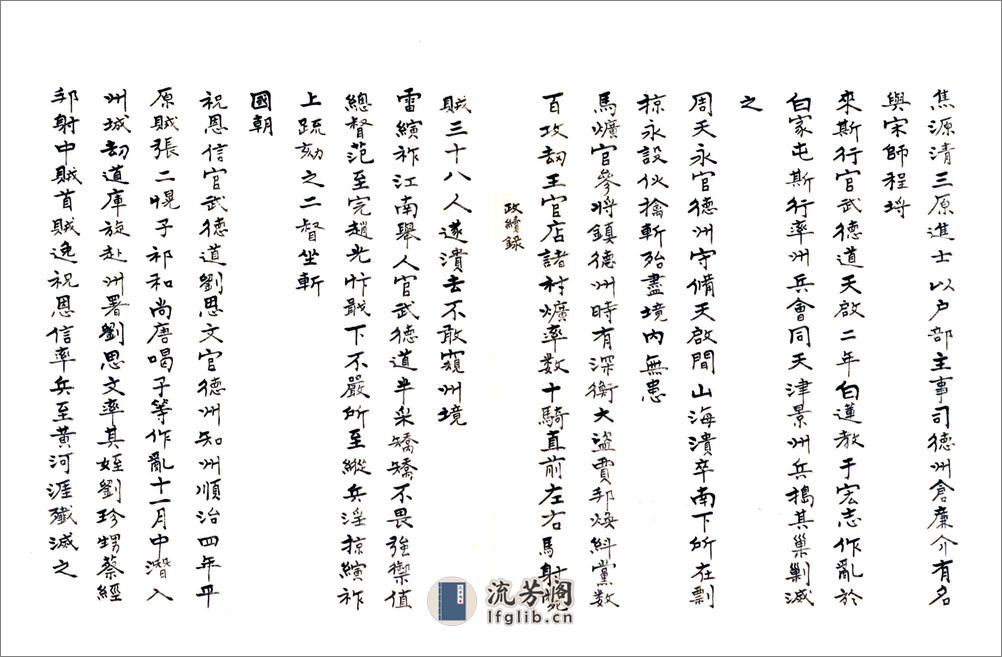 焦源清三原進士以户部主事司德州倉廉介有名
與宋師程埓
來斯行官武德道天啟二年白蓮教于宏志作亂於
白家屯斯行率州兵會同天津景州兵搗其巢剿滅
之
周天永官德州守備天啟間山海潰卒南下所在剽
掠永設伏擒斬殆盡境內無患
馬爌官參將鎮德州時有深衡大盜賈邦煥糾黨數
百攻刼王官店諸村爌率數十騎直前左右馬射
政績錄
賊三十八人遂潰去不敢窺州境
雷縯祚江南舉人官武德道丰采矯矯不畏強禦值
總督范至完趙光忭戢下不嚴所至縱兵淫掠縯祚
上疏劾之二督坐斬
國朝
祝恩信官武德道劉思文官德州知州順治四年平
原賊張二幌子祁和尚唐喝子等作亂十一月中潛入
州城刧道庫旋赴州署劉思文率其姪劉珍甥蔡經
邦射中賊首賊逸祝恩信率兵至黃河涯殲滅之
流芳閣
lfglib.cn